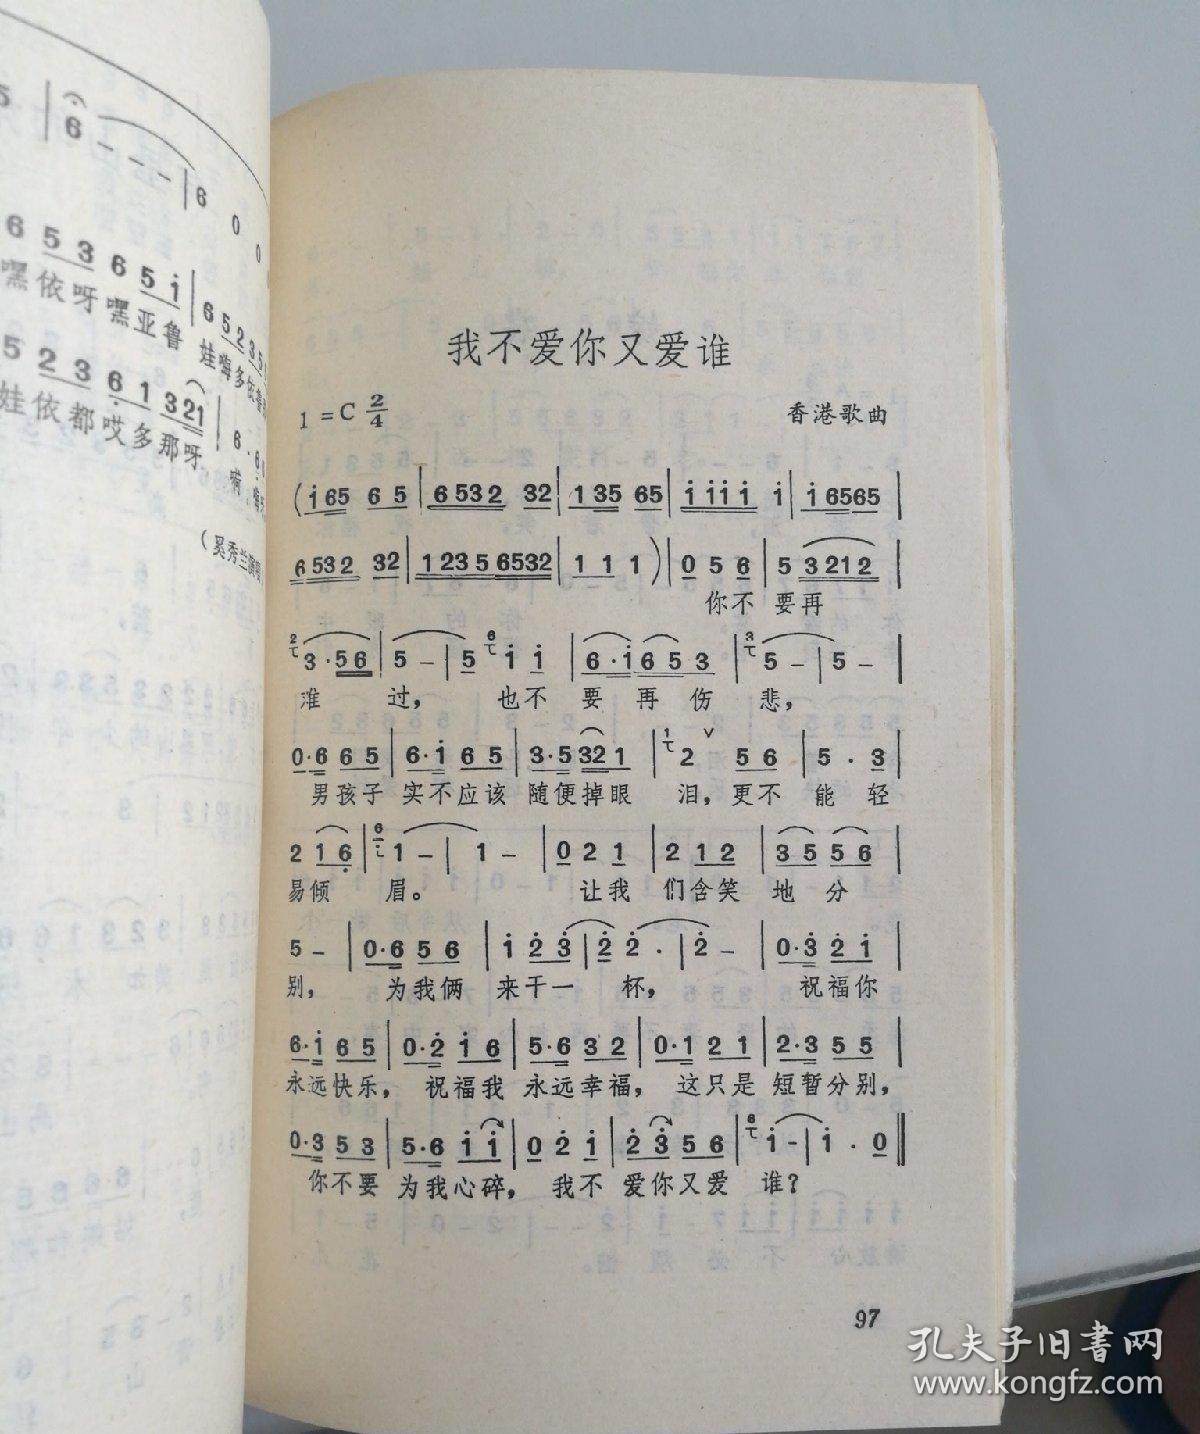 5 | 6 - - - | 6 0 0
6 53 6 5i | 6523 5
嘿依呀嘿亚鲁 娃嗨多依鲁
5 23 61 321 | 6·
娃依都哎多那呀 嗬
(奚秀兰演唱
我不爱你又爱谁
1=C 2/4
香港歌曲
(i65 65 | 6532 32 | 135 65 | iiii i | i6565 |
6532 32 | 1235 6532 | 11 1) | 0 5 6 | 5 3212 |
你不 要再
2 3·56 | 5 - | 5 6 i i | 6·i 653 | 3 5 - | 5 - |
难 过, 也不 要 再 伤 悲,
0·6 65 | 6·i 65 | 3·5 321 | 1 2 ∨ 56 | 5· 3 |
男孩子 实不应该 随便掉眼 泪, 更不 能 轻
2 16 | 6 1 - | 1 - | 0 2 1 | 2 12 | 35 56 |
易倾 眉。 让我 们含笑 地 分
5 - | 0·6 56 | i 23 | 2 2· | 2 - | 0·3 2i |
别, 为我俩 来干一 杯, 祝福你
6·i 65 | 0·2 i6 | 5·6 32 | 0·1 21 | 2·3 55 |
永远快乐, 祝福我 永远幸福, 这只是 短暂分别,
0·3 53 | 5·6 ii | 0 2 i | 23 56 | 6 i - | i· 0 ‖
你不要 为我心碎, 我不 爱你又爱 谁?
97
孔夫子旧书网
www.kongfz.com